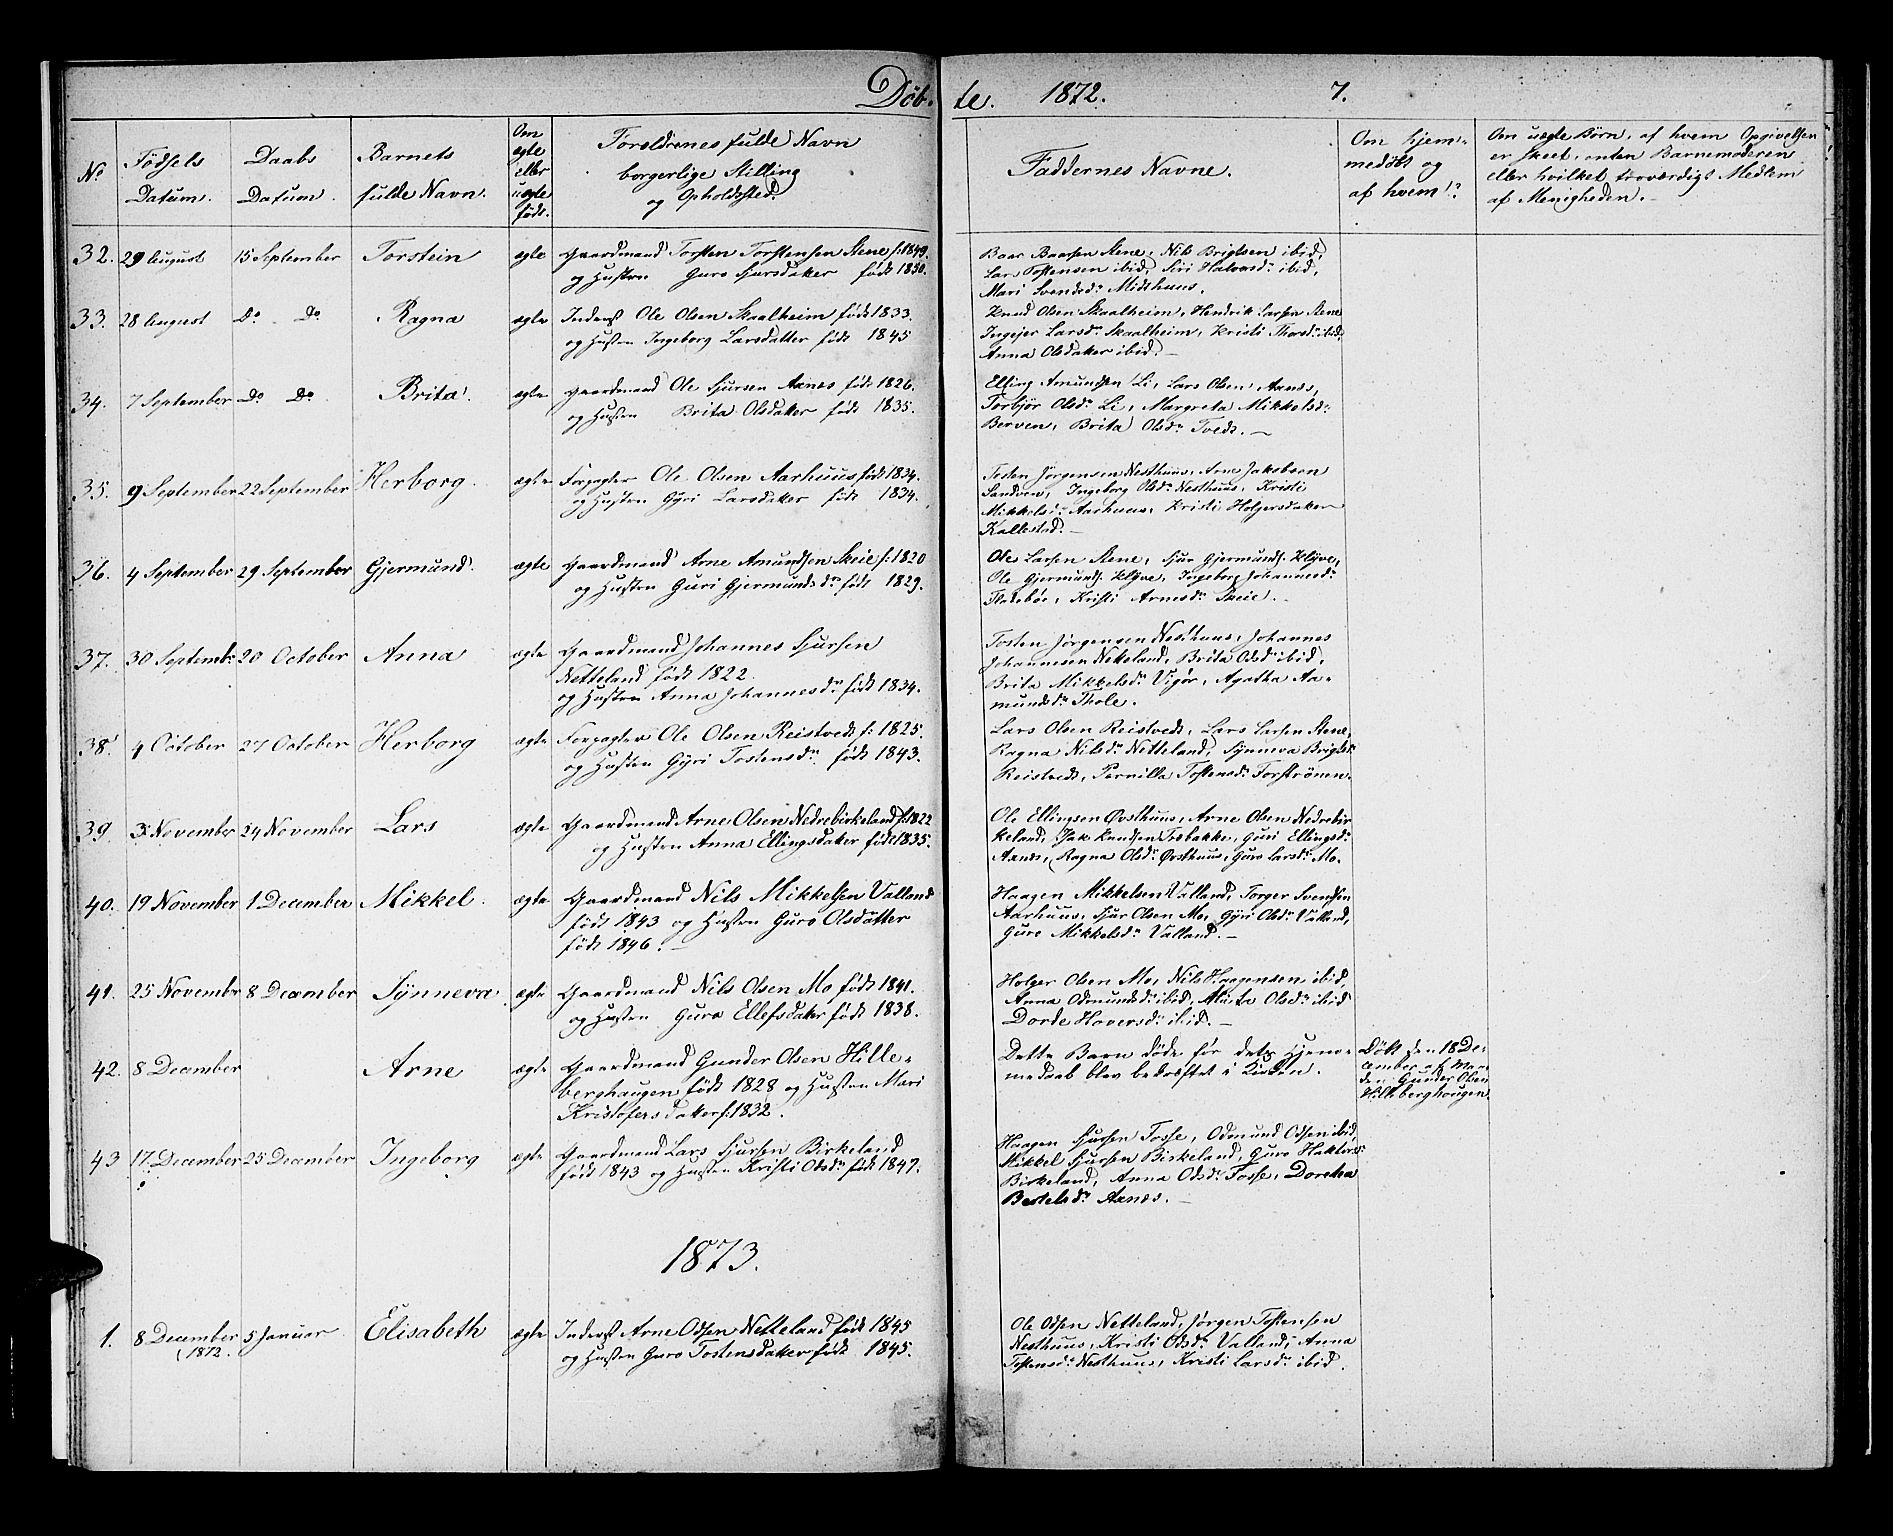 Døb-
te. 1872. 7.
No
Fødsels Datum.
Daabs Datum.
Barnets fulde Navn.
Om ægte eller uægte født.
Forældrenes fulde Navn
borgerlige Stilling
og Opholdssted.
Faddernes Navne.
Om hjem-
medøbt og
af hvem?
Om uægte Børn, af hvem Opgivelsen
er skeet, enten Barnemoderen
eller hvilket troværdigt Medlem
af Menigheden.
32. 29 August 15 September Torstein ægte Gaardmand Torsten Torstensen Stene f: 1849.
og Hustru Guro Sjursdatter født 1850.
Baar Baarsen Stene, Nils Brigtsen ibid,
Lars Tostensen ibid, Siri Halvorsdr ibid,
Mari Svendsdr Midthuus.
33. 28 August Do Do Ragna ægte Inderst Ole Olsen Skaalheim født 1833.
og Hustru Ingeborg Larsdatter født 1845
Knud Olsen Skaalheim, Hendrik Larsen Stene
Ingejer Larsdr Skaalheim, Kristi Thorsdr ibid,
Anna Olsdatter ibid.
34. 7 September Do Do Brita. ægte Gaardmand Ole Sjursen Aanes født 1826.
og Hustru Brita Olsdatter født 1835.
Elling Amundsen Li, Lars Olsen, Aanes,
Torbjør Olsdr Li, Margreta Mikkelsdr
Berven, Brita Olsdr Tvedt.
35. 9 September 22 September Herborg. ægte Forpagter Ole Olsen Aarhuus født 1834.
og Hustru Gyri Larsdatter født 1834.
Tosten Jørgensen Nesthuus, Arne Jakobsen
Sandven, Ingeborg Olsdr Nesthuus, Kristi
Mikkelsdr Aarhuus, Kristi Holgersdatter
Kallestad.
36. 4 September 29 September Gjermund. ægte Gaardmand Arne Amundsen Skeie f: 1820
og Hustru Guri Gjermundsdr født 1829.
Ole Larsen Stene, Sjur Gjermunds. Klyve,
Ole Gjermunds. Klyve, Ingeborg Johannesdr
Flatebøe, Kristi Arnesdr Skeie.
37. 30 Septembr 20 October Anna ægte Gaardmand Johannes Sjursen
Netteland født 1822.
og Hustru Anna Johannesdr født 1834.
Tosten Jørgensen Nesthuus, Johannes
Johannesen Netteland, Brita Odsdr ibid,
Brita Mikkelsdr Vigør, Agatha Aa-
mundsdr Thole.
38. 4 October 27 October Herborg ægte Forpagter Ole Olsen Reistvedt f: 1825.
og Hustru Gyri Tostensdr født 1843.
Lars Olsen Reistvedt, Lars Larsen Stene,
Ragna Nilsdr Netteland, Synneva Brigtsdr
Reistvedt, Pernilla Tostensdr Forströnen.
39. 3 November 24 November Lars ægte Gaardmand Arne Olsen Nedrebirkeland f: 1822
og Hustru Anna Ellingsdatter født 1835.
Ole Ellingsen Øvsthuus, Arne Olsen Nedrebir
keland, Jak Knudsen Tosbakke, Guri Ellingsdr
Aanes, Ragna Olsdr Øvsthuus, Guro Larsdr Mo.
40. 19 November 1 December Mikkel. ægte Gaardmand Nils Mikkelsen Valland
født 1843 og Hustru Guro Olsdatter
født 1846.
Haagen Mikkelsen Valland, Torger Svendsen
Aarhuus, Sjur Olsen Mo, Gyri Olsdr Valland,
Guro Mikkelsdr Valland.
41. 25 Novembr 8 December Synneva. ægte Gaardmand Nils Olsen Mo født 1841.
og Hustru Guro Ellefsdatter født 1838.
Holger Olsen Mo, Nils Haagensen ibid,
Anna Odmundsdr ibid, Marta Olsdr ibid
Dorde Hoversdr ibid.
42. 8 December Arne ægte Gaardmand Gunder Olsen Hille-
berghaugen født 1828 og Hustru Mari
Kristofersdatter f: 1832.
Dette Barn døde før dets Hjem-
medaab blev bekræftet i Kirken.
Døbt den 18 De-
cember af Man-
den Gunder Olsen
Hilleberghougen.
43 17 December 25 December Ingeborg ægte Gaardmand Lars Sjursen Birkeland
født 1843 og Hustru Kristi Odsdr født 1847.
Haagen Sjursen Fosse, Odmund Odsen ibid,
Mikkel Sjursen Birkeland, Guro Haktorsdr
Birkeland, Anna Odsdr Fosse, Dorthea
Bertelsdr Aanes.
1873.
1. 8 December 5 Januar. Elisabeth ægte Inderst Arne Odsen Netteland født 1845
(1872. og Hustru Guro Tostensdatter født 1845.
Ole Odsen Netteland, Jørgen Tostensen
Nesthuus, Kristi Odsdr Valland, Anna
Tostensdr Nesthuus, Kristi Larsdr ibid.